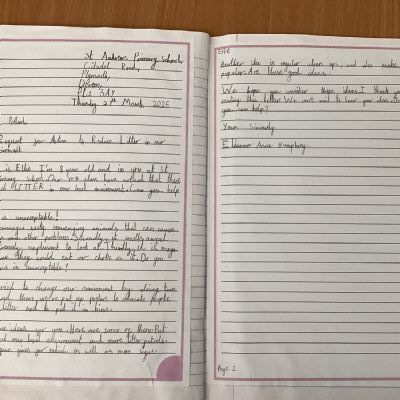 St Andrews Primary School,
Citadel Road,
Plymouth,
Devon,
PL1 3AY
Thursday 2nd March 2025
Pollock
Request for Action to Reduce Litter in our
is Ellie I'm 8 year old and in yr4 at St
school. Our Yr4 class have noticed that there
of LITTER in our local enviroment. Can you help
is unacceptable!
scavenging animals that can cause
and other problems. Secondly, it smells and
unpleasant to look at. Thirdly, it is
they could eat or choke on it. Do you
this is Unacceptable?
tried to change our enviroment by giving time
and then we've put up posters to educate people
litter and to put it in bins.
ideas for you. Here are some of them. Put
our local enviroment and more litter patrols.
as well as more signs.
Ellie
Another idea is regular clean ups, and also make
popular. Are these good ideas.
We hope you consider these ideas. I thank you
reading this letter. We can't wait to hear your ideas. Do
you can help?
Your Sincerely
Eleanor Anne Humphrey
Page 2